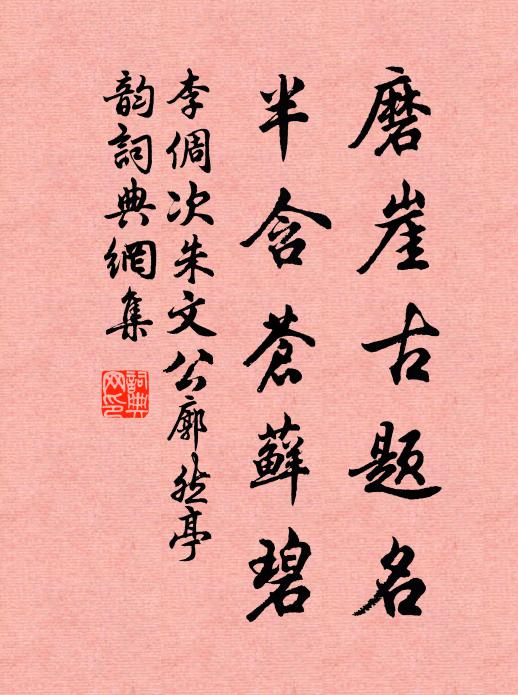 磨崖古题名
半含苍藓碧
李倜次朱文公廓然亭
韵词典网集
词典网印